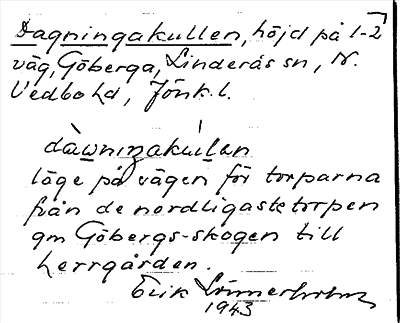 Dagningakullen, höjd på 1-2
väg, Göberga, Linderås sn, N.
Vedbo hd, Jönk. l.
dàwniŋakúlen
läge på vägen för torparna
från de nordligaste torpen
gm Göbergs-skogen till
herrgården.
Erik Linnerholm
1943